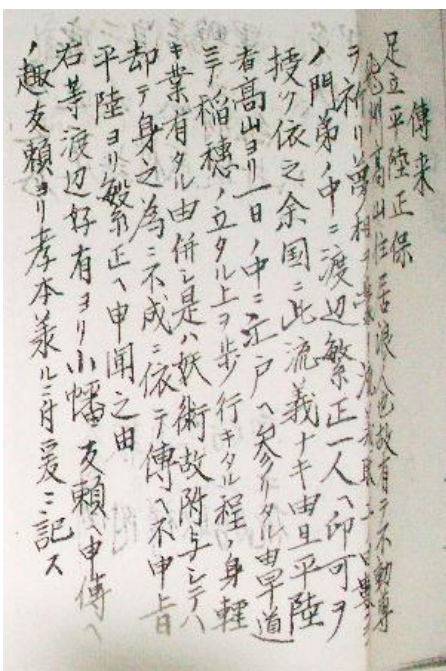 傳来
足立平陸正保
高山住居浪人也故有テ不動尊
ヲ祈リ夢相ヲ
ノ門弟ノ中ニ渡辺繁正一人ヘ印可ヲ
授ク依之余国ニ此流義ナキ由旦平陸
者高山ヨリ一日ノ中ニ江戸ヘ参リタル由早道
ニテ稲穂ノ立タル上ヲ歩行キタル程ノ身軽
キ業有タル由併シ是ハ妖術故附与シテハ
却テ身之為ニ不成ニ依テ傳ヘ不申旨
平陸ヨリ繁正ヘ申聞之由
右等渡辺好有ヨリ小幡友頼ヘ申傳ヘ
ノ趣友頼ヨリ孝本義ルニ付爰ニ記ス